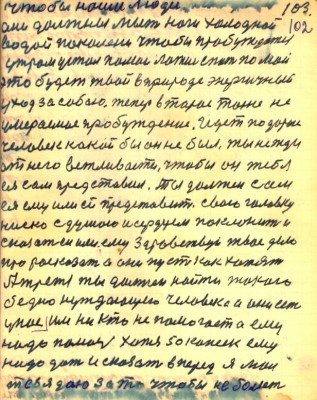 чтобы наши люди,
103.
102
они должны мыть ноги холодной
водой по колени чтобы пробуждати
утром устал помой ложись спат помой
это будет твой в природе энергичный
уход за собою, теперь второе тоже не
умераемое пробуждение, Идет по дороге
человек какой бы он не был, ты не жди
от него ветливасти, чтобы он тебя
сам представил. Ты должен с
ему или ей представить свою головку
низко с душою и сердцем поклонит и
сказат ей или ему Здравствуй твое дело
про росказат а они пуст как хотят
А третя ты должен найти такого
бедно нуждающего человека а они есть
у нас, им ни кто не помогает а ему
надо помощ хотя 50 копеек ему
надо дат и сказат вперед я мои
тебя даю за то чтобы не болет